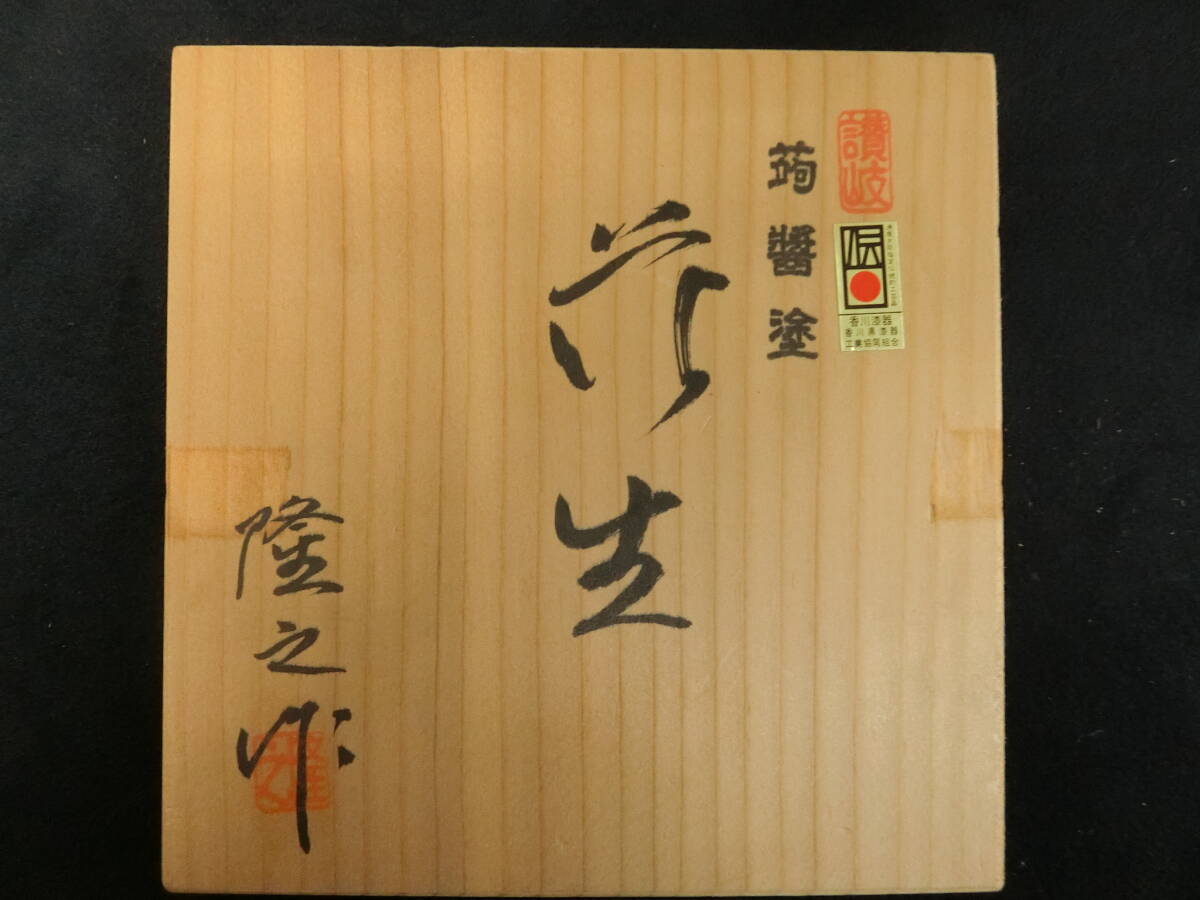 讃岐
伝
香川漆器
香川県漆器
工業協同組合
蒟醬塗
花生
隆之作